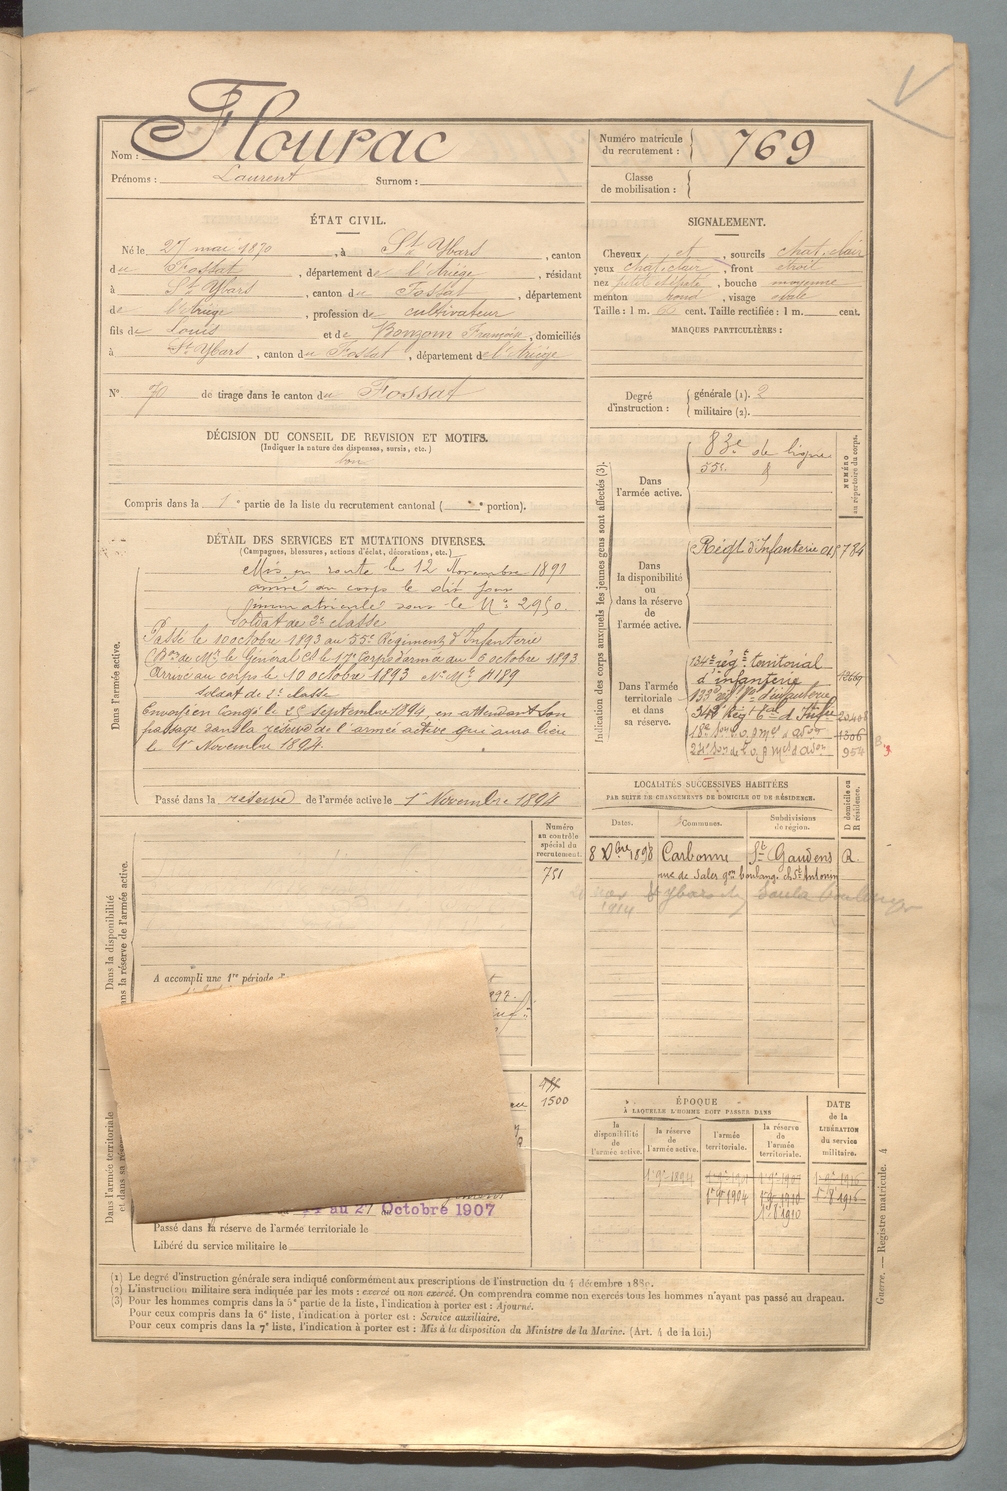 Nom : Flourac
Prénoms : Laurent Surnom :
Numéro matricule du recrutement : 769
Classe de mobilisation :
ÉTAT CIVIL.
Né le 27 mai 1870, à St Ybars, canton
du Fossat, département de l'Ariège, résidant
à St Ybars, canton du Fossat, département
de l'Ariège, profession de cultivateur
fils de Louis et de Bonzom Françoise, domiciliés
à St Ybars, canton du Fossat, département de l'Ariège
No 70 de tirage dans le canton du Fossat
SIGNALEMENT.
Cheveux et, sourcils chat. clair
yeux chat. clair, front étroit
nez, bouche moyenne
menton rond, visage ovale
Taille : 1 m. cent. Taille rectifiée : 1 m. cent.
MARQUES PARTICULIÈRES :
Degré d'instruction : générale (1). 2
militaire (2).
DÉCISION DU CONSEIL DE REVISION ET MOTIFS.
(Indiquer la nature des dispenses, sursis, etc.)
bon
Compris dans la 1e partie de la liste du recrutement cantonal ( e portion).
DÉTAIL DES SERVICES ET MUTATIONS DIVERSES.
(Campagnes, blessures, actions d'éclat, décorations, etc.)
Dans l'armée active.
Mis en route le 12 Novembre 1891
arrivé au corps le dit jour
immatriculé sous le No 2950.
Soldat de 2e classe
Passé le 10 octobre 1893 au 55e Régiment d'Infanterie
(Don de Mr le Général Ct le 17e Corps d'armée du 6 octobre 1893
Arrivé au corps le 10 octobre 1893 No Mle 4189
soldat de 2e classe
Envoyé en congé le 25 septembre 1894, en attendant son
passage dans la réserve de l'armée active qui aura lieu
le 1er Novembre 1894.
Passé dans la réserve de l'armée active le 1er Novembre 1894
Indication des corps auxquels les jeunes gens sont affectés (3).
NUMÉRO au répertoire du corps.
Dans l'armée active.
83e de ligne
55e
Dans la disponibilité ou dans la réserve de l'armée active.
Régt d'Infanterie 784
Dans l'armée territoriale et dans sa réserve.
134e régt territorial
d'infanterie
133e
954
LOCALITÉS SUCCESSIVES HABITÉES
PAR SUITE DE CHANGEMENTS DE DOMICILE OU DE RÉSIDENCE.
D domicile ou R résidence.
Dates. Communes. Subdivisions de région.
8 Xbre 1898 Carbonne St Gaudens R.
1914
Numéro au contrôle spécial du recrutement.
751
Dans la disponibilité
dans la réserve de l'armée active.
A accompli une 1re période
Dans l'armée territoriale
et dans sa
1500
au 27 Octobre 1907
Passé dans la réserve de l'armée territoriale le
Libéré du service militaire le
ÉPOQUE
À LAQUELLE L'HOMME DOIT PASSER DANS
DATE de la LIBÉRATION du service militaire.
la disponibilité de l'armée active.
la réserve de l'armée active.
l'armée territoriale.
la réserve de l'armée territoriale.
Guerre. — Registre matricule. 4
(1) Le degré d'instruction générale sera indiqué conformément aux prescriptions de l'instruction du 4 décembre 1889.
(2) L'instruction militaire sera indiquée par les mots : exercé ou non exercé. On comprendra comme non exercés tous les hommes n'ayant pas passé au drapeau.
(3) Pour les hommes compris dans la 5e partie de la liste, l'indication à porter est : Ajourné.
Pour ceux compris dans la 6e liste, l'indication à porter est : Service auxiliaire.
Pour ceux compris dans la 7e liste, l'indication à porter est : Mis à la disposition du Ministre de la Marine. (Art. 4 de la loi.)